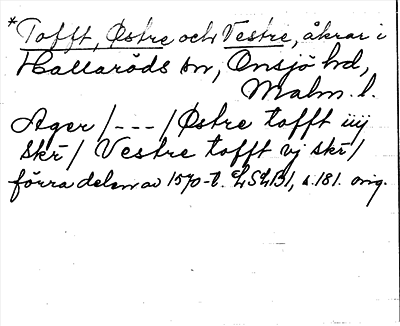 *Tofft, Østre och Vestre, åkrar i
Hallaröds sn, Onsjö hd,
Malm. l.
Ager /---/ Østre tofft iiij
skr̄ / Vestre tofft vj skr̄ /
förra delen av 1570-t. LSLB1, s. 181. orig.